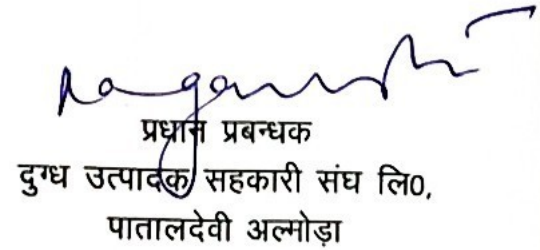 प्रधान प्रबन्धक
दुग्ध उत्पादक सहकारी संघ लि0,
पातालदेवी अल्मोड़ा